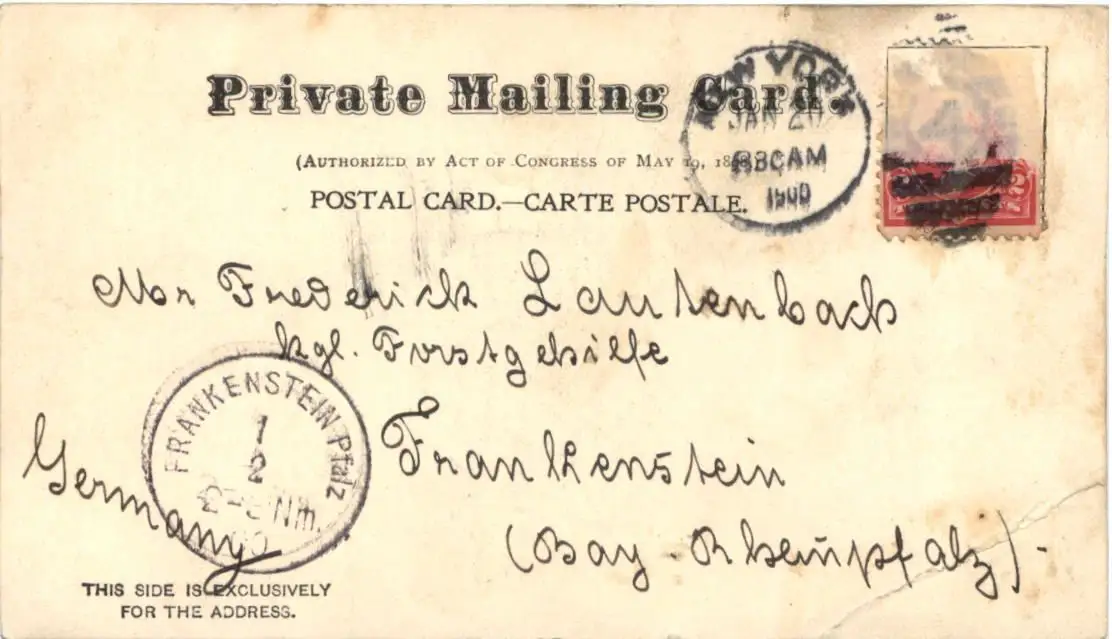 Private Mailing Card.
(AUTHORIZED BY ACT OF CONGRESS OF MAY 19, 1898)
POSTAL CARD.—CARTE POSTALE.
NEW YORK
JAN 20
830AM
1900
Mr Frederick Lautenbach
kgl. Forstgehilfe
FRANKENSTEIN Pfalz
1
2
Nm.
Frankenstein
Germany
(Bay. Rheinpfalz).
THIS SIDE IS EXCLUSIVELY
FOR THE ADDRESS.